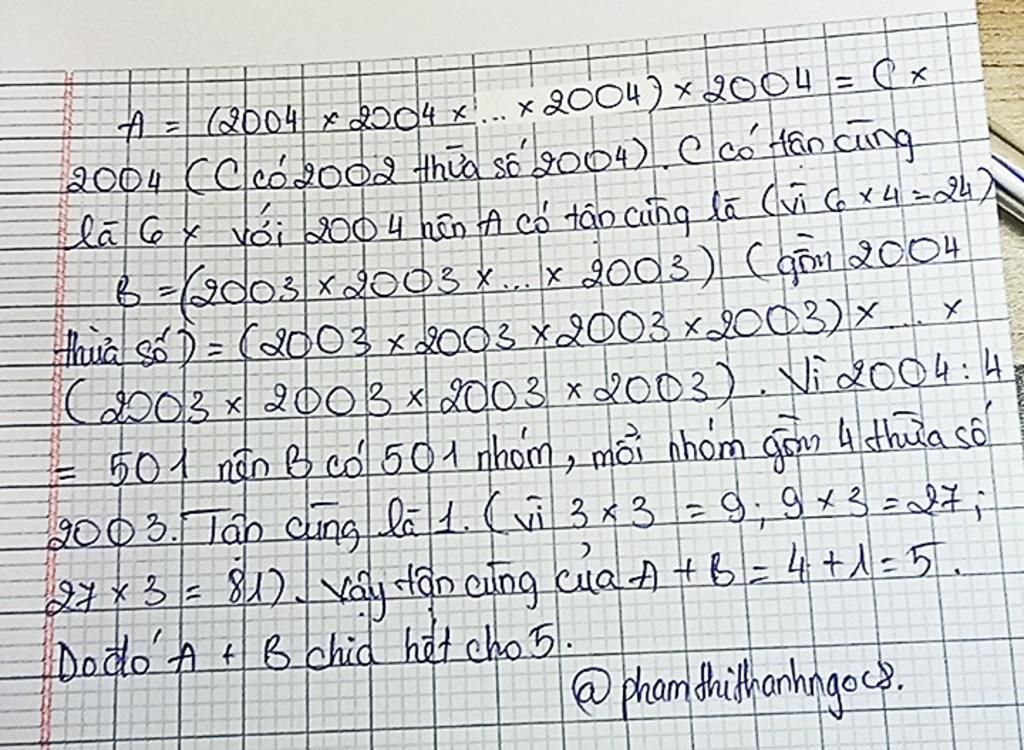 A = (2004 × 2004 × ... × 2004) × 2004 = C ×
2004 (C có 2002 thừa số 2004). C có tận cùng
là 6 × với 2004 nên A có tận cùng là (vì 6 × 4 = 24)
B = (2003 × 2003 × ... × 2003) (gồm 2004
thừa số) = (2003 × 2003 × 2003 × 2003) × ... ×
(2003 × 2003 × 2003 × 2003). Vì 2004 : 4
= 501 nên B có 501 nhóm, mỗi nhóm gồm 4 thừa số
2003. Tận cùng là 1. (vì 3 × 3 = 9; 9 × 3 = 27;
27 × 3 = 81). Vậy tận cùng của A + B = 4 + 1 = 5.
Do đó A + B chia hết cho 5.
@phamthithanhngoc8.